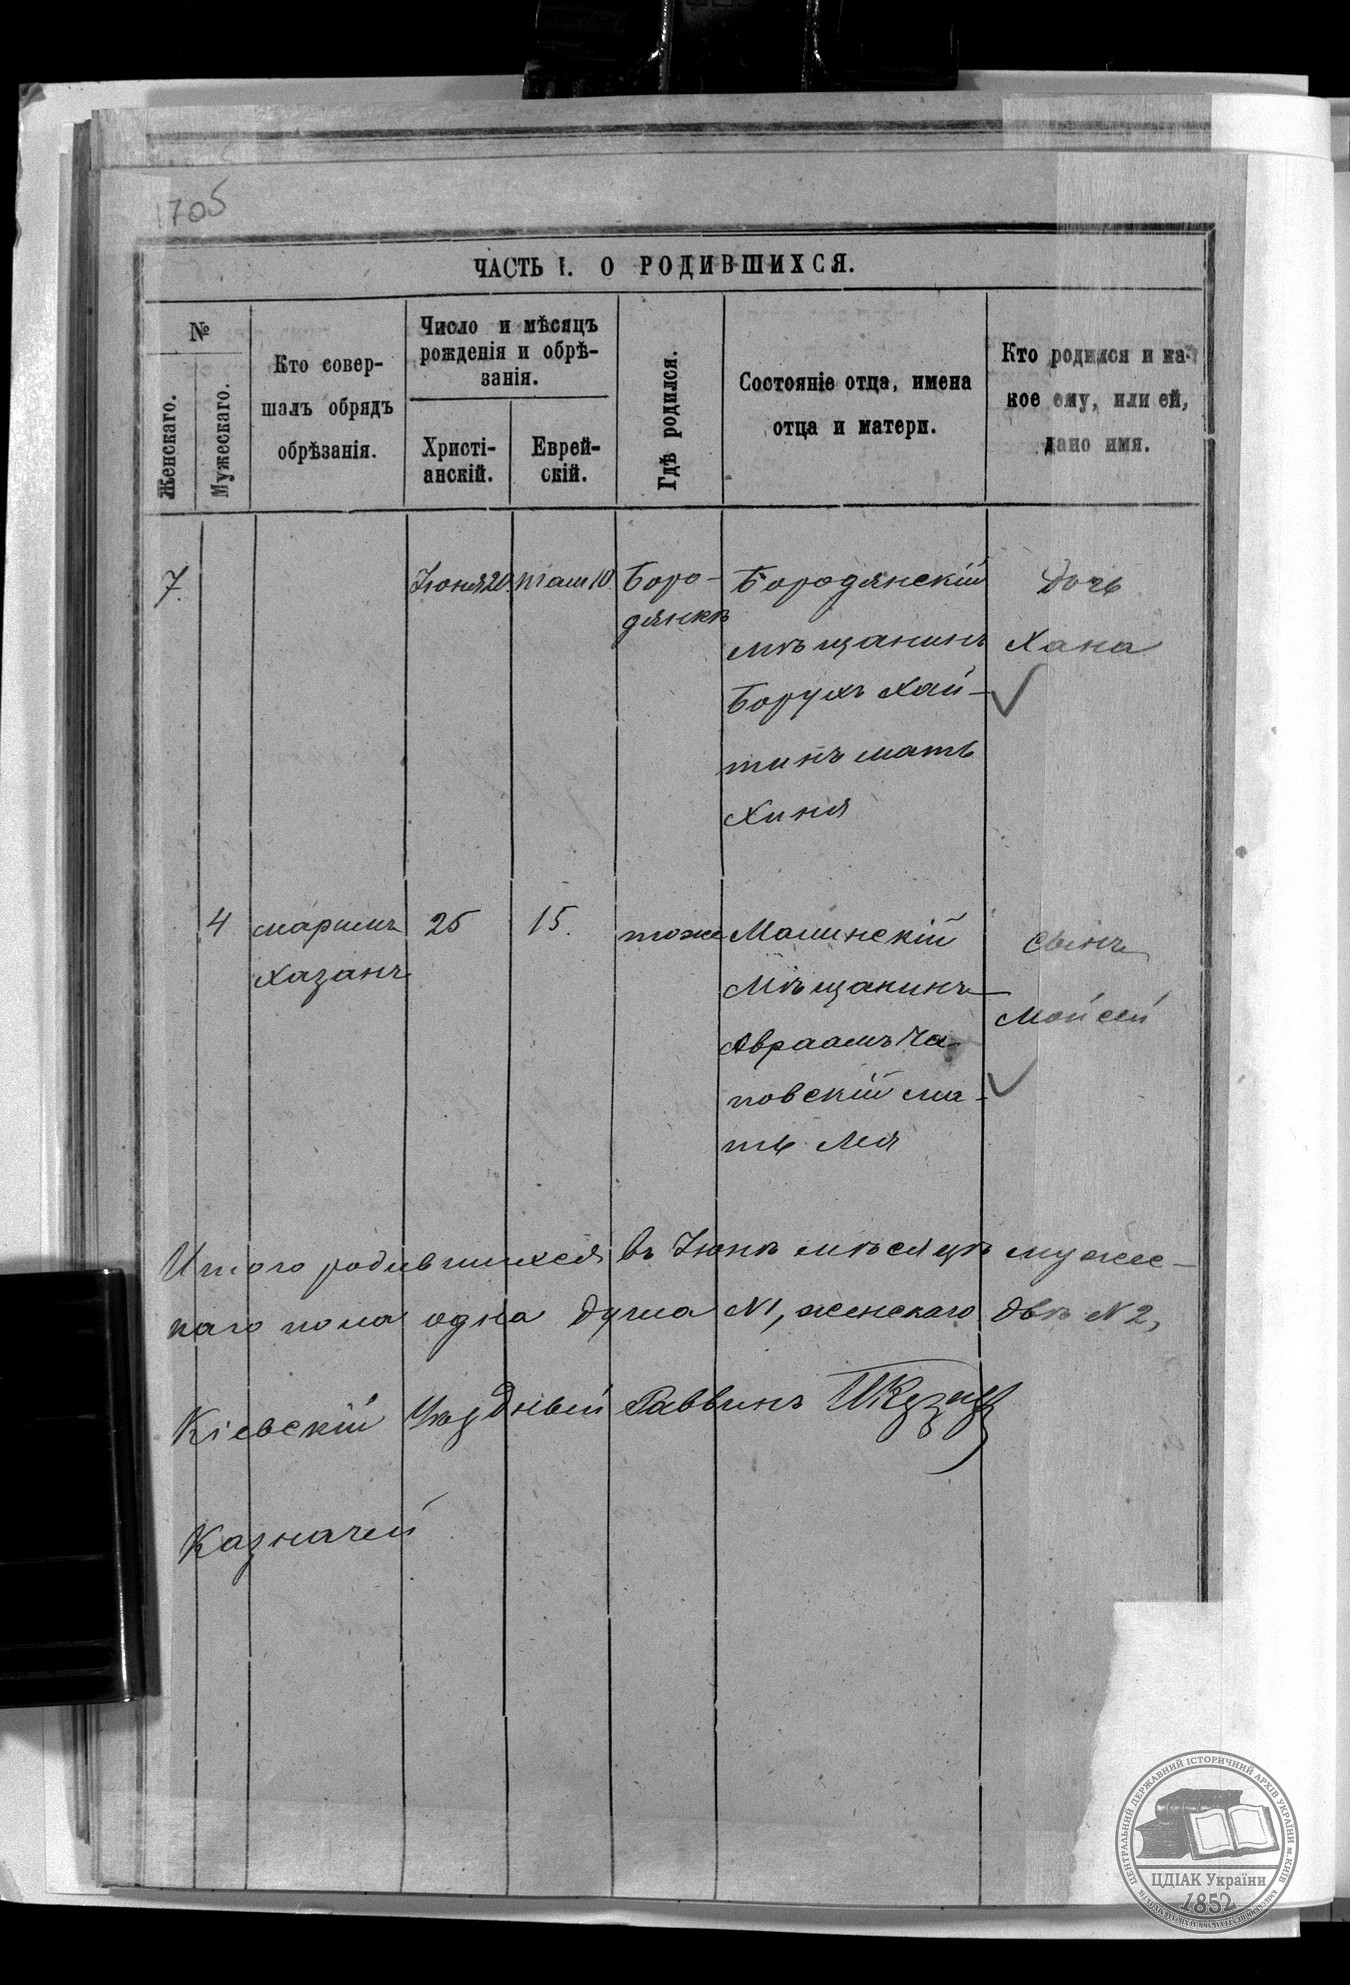 1705
ЧАСТЬ I. О РОДИВШИХСЯ.
№
Женскаго.
Мужескаго.
Кто совер-
шалъ обрядъ
обрѣзанія.
Число и мѣсяцъ
рожденія и обрѣ-
занія.
Христі-
анскій.
Еврей-
скій.
Гдѣ родился.
Состояніе отца, имена
отца и матери.
Кто родился и ка-
кое ему, или ей,
дано имя.
7.
Іюня 20.
Таш 10.
Боро-
дянкѣ
Бородянскій
мѣщанинъ
Борухъ Хай-
тинъ мать
Хиня
Дочь
Хана
4
Хазанъ
25
15.
тоже
Малинскій
Мѣщанинъ
Авраамъ Ча-
повскій ма-
ть Лея
Сынъ
Мойсей
Итого родившихся въ Іюнѣ мѣсяцѣ мужес-
каго пола одна душа №1, женскаго двѣ №2,
Кіевскій Уѣздный Раввинъ
Казначей
ЦЕНТРАЛЬНИЙ ДЕРЖАВНИЙ ІСТОРИЧНИЙ АРХІВ УКРАЇНИ м. КИЇВ
ЦДІАК України
1852